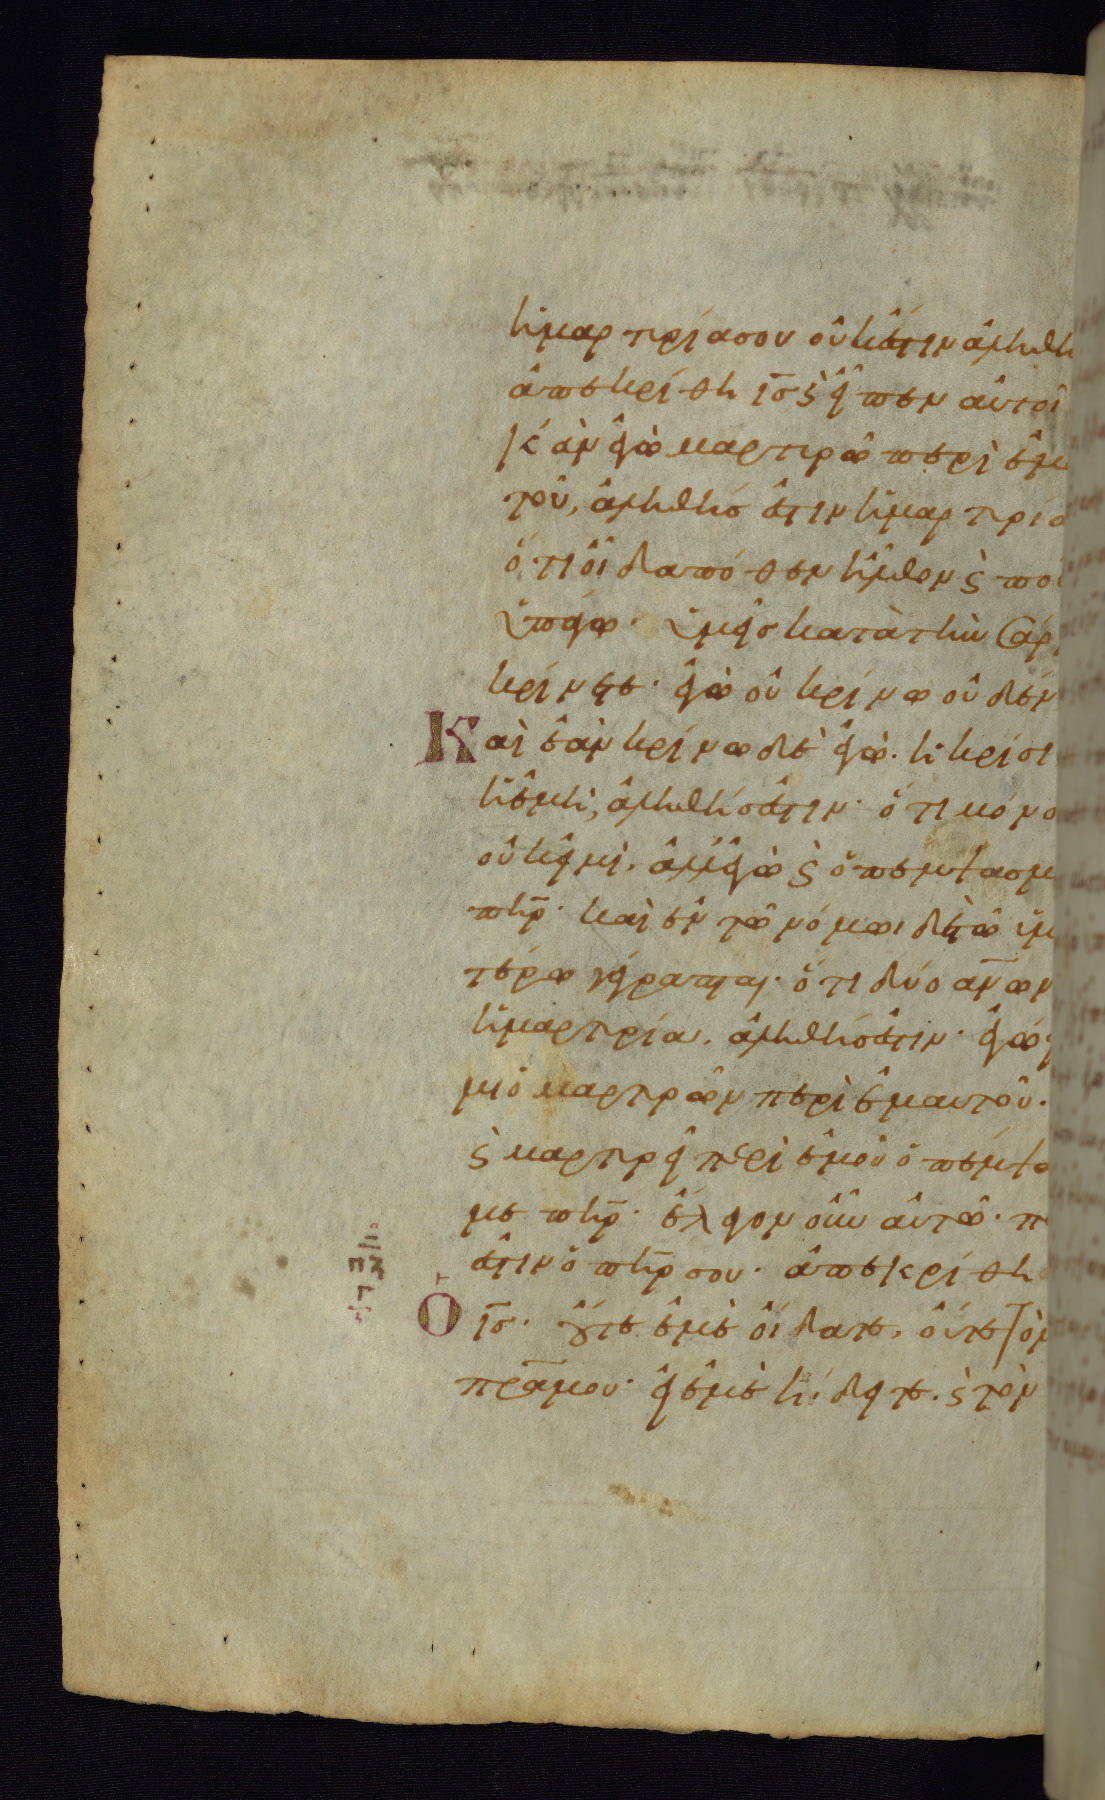 ἡ μαρτυρία σου οὐκ ἔστιν ἀληθὴ
ἀπεκρίθη ι̅ς̅ ϛ εἶπεν αὐτοῖ
κἂν ἐγὼ μαρτυρῶ περὶ ἐμ
τοῦ, ἀληθής ἐστιν ἡ μαρτυρία
ὅτι οἶδα πόθεν ἦλθον ϛ ποῦ
ὑπάγω· ὑμεῖς κατὰ τὴν σάρ
κρίνετε· ἐγὼ οὐ κρίνω οὐδέν
Καὶ ἐὰν κρίνω δὲ ἐγώ. ἡ κρίσι
ἡ ἐμὴ, ἀληθής ἐστιν· ὅτι μόνο
οὐκ εἰμὶ. ἀλλ' ἐγὼ ϛ ὁ πέμψας με
π̅η̅ρ̅· καὶ ἐν τῶ νόμωι δὲ τῶ ὑμ
τέρω γέγραπται· ὅτι δύο α̅ν̅ων
ἡ μαρτυρία. ἀληθής ἐστιν· ἐγώ εἰ
μι ὁ μαρτυρῶν περὶ ἐμαυτοῦ.
ϛ μαρτυρεῖ περὶ ἐμοῦ ὁ πέμψα
με π̅η̅ρ̅· ἔλεγον οὖν αὐτῶ· π
ἐστιν ὁ π̅η̅ρ̅ σου· ἀπεκρίθη
ι̅ς̅· Οὔτε ἐμὲ οἴδατε. οὔτε τὸν
π̅ρ̅α̅ μου· εἰ ἐμὲ ἤδειτε. ϛ τὸν